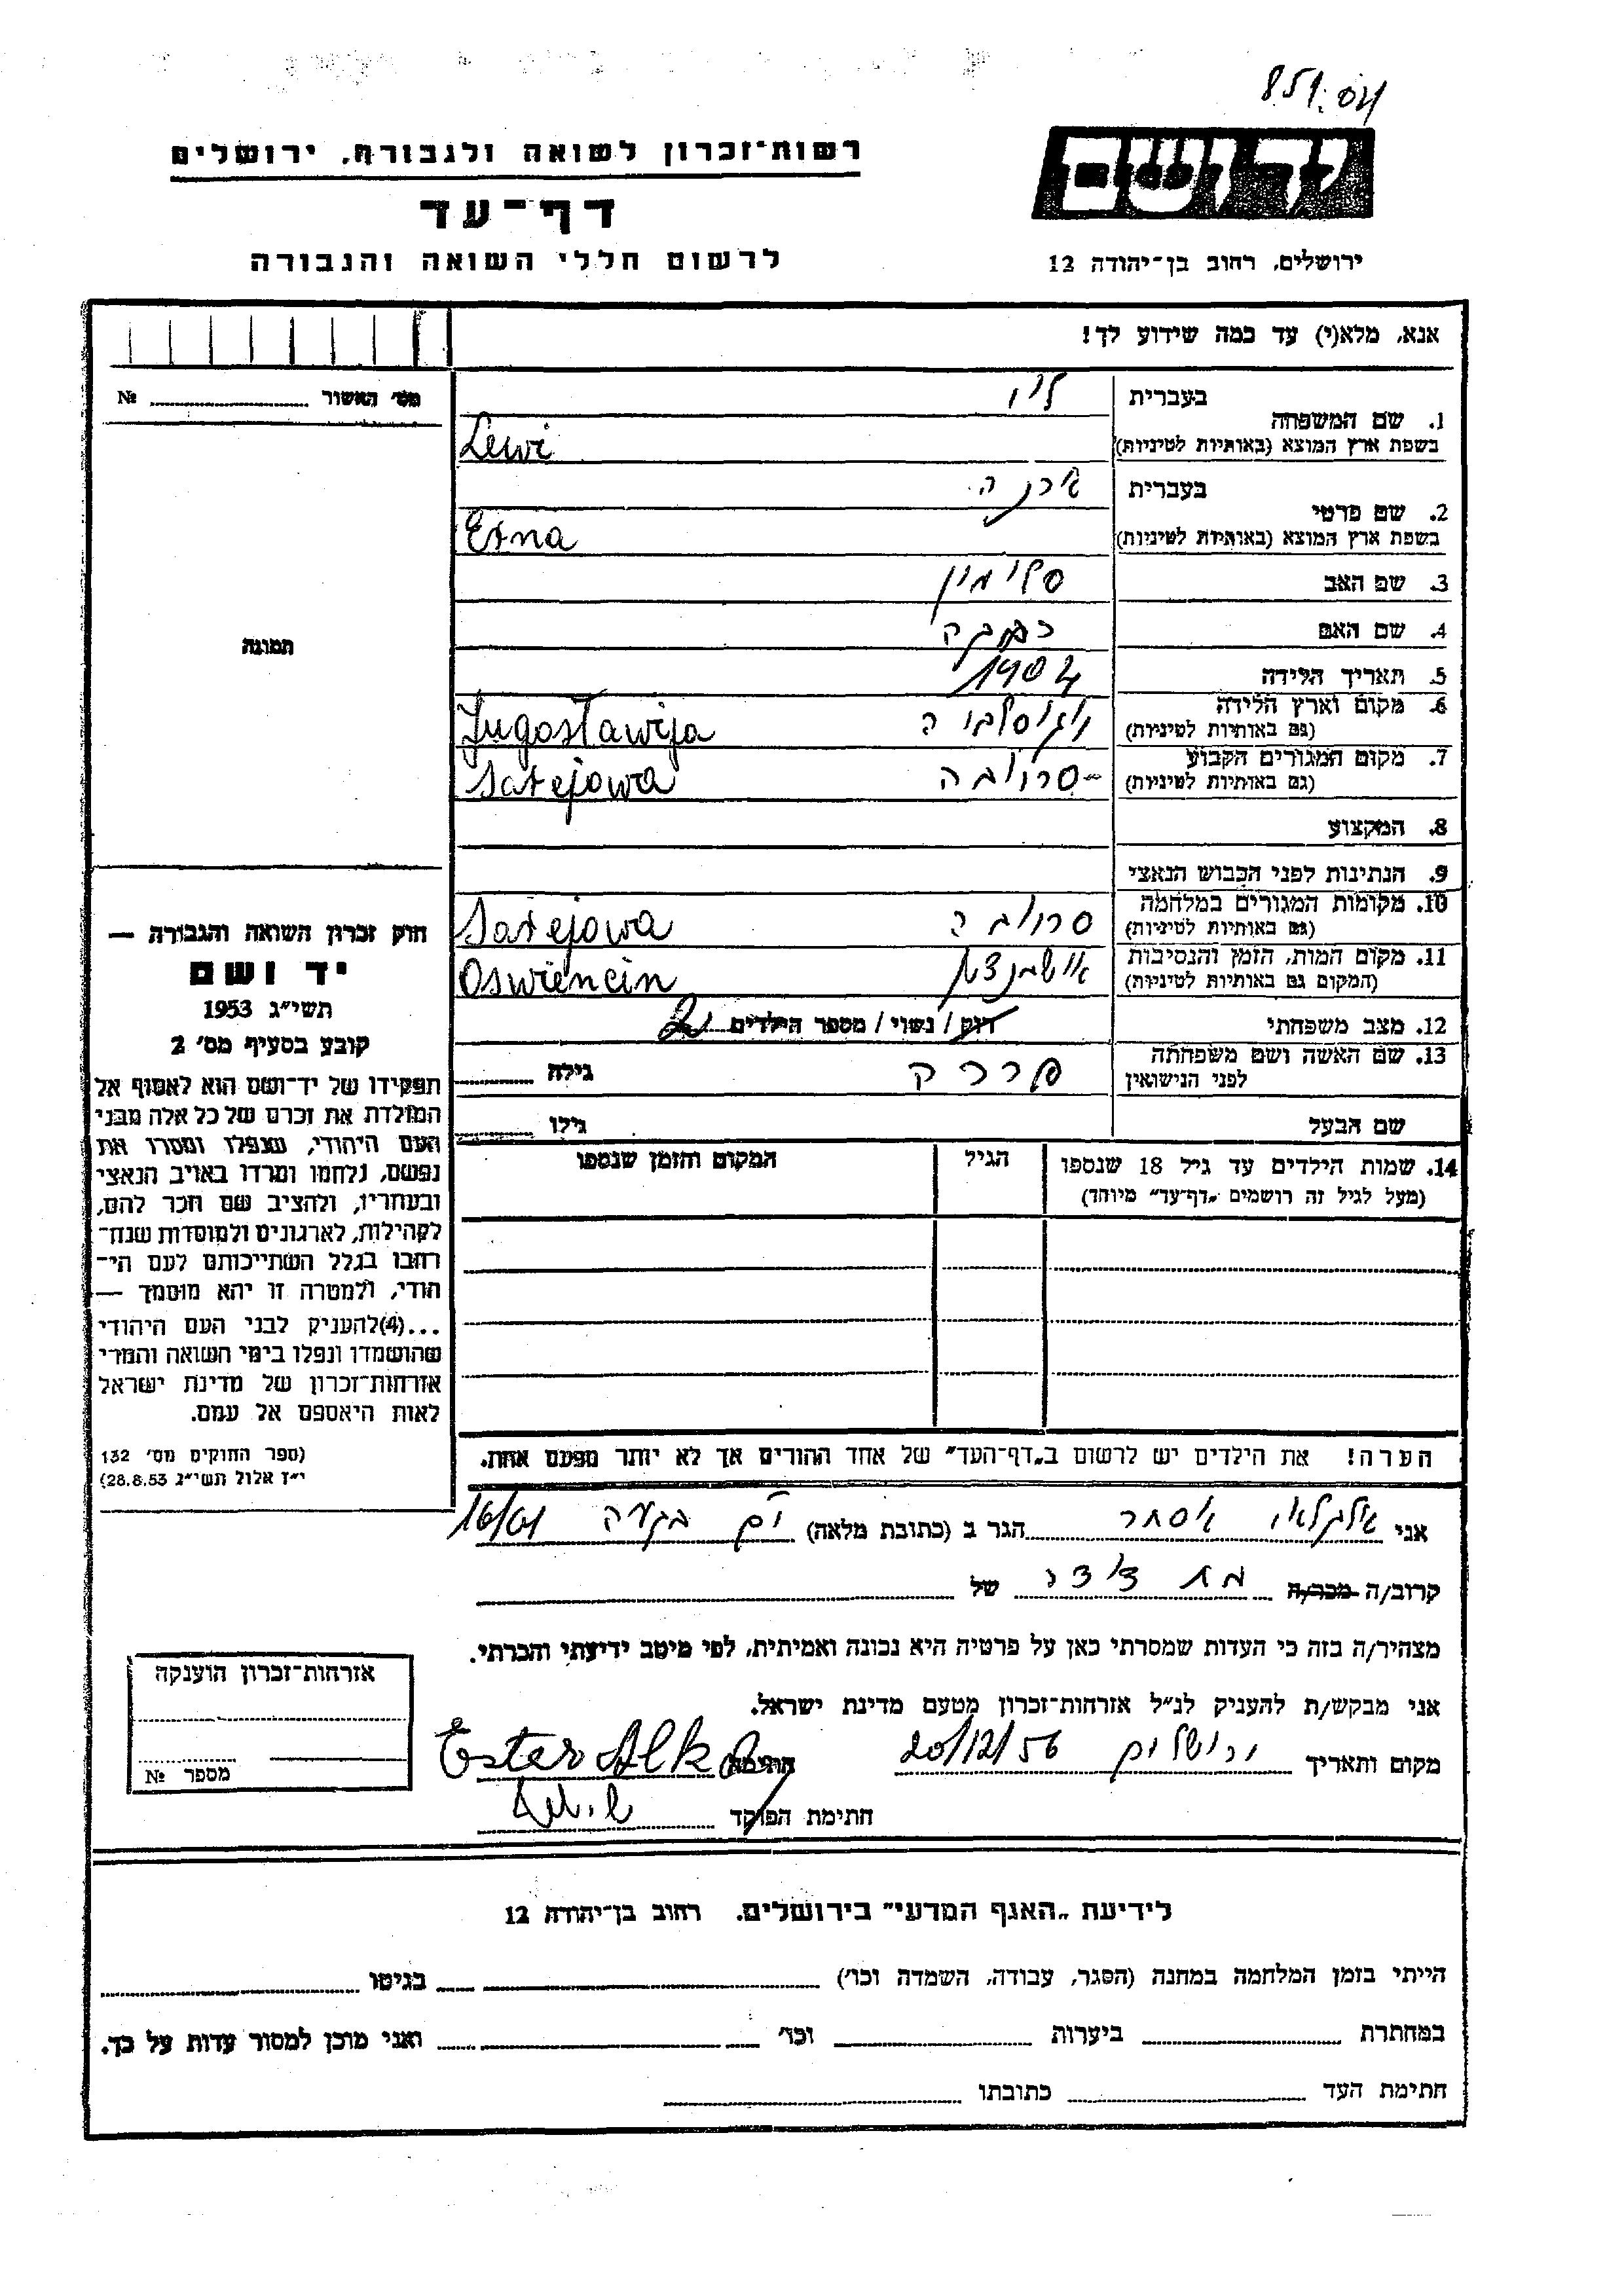 851.04
רשות-זכרון לשואה ולגבורה, ירושלים
יד ושם
דף-עד
לרשום חללי השואה והגבורה
ירושלים, רחוב בן-יהודה 12
אנא, מלא(י) עד כמה שידוע לך!
מס' האשור № 
1. שם המשפחה בעברית לוי
בשפת ארץ המוצא (באותיות לטיניות) Lewi
2. שם פרטי בעברית ארנה
בשפת ארץ המוצא (באותיות לטיניות) Erna
3. שם האב סלימון
4. שם האם
5. תאריך הלידה 1904
6. מקום וארץ הלידה יגוסלביה Jugoslawija
(גם באותיות לטיניות)
7. מקום המגורים הקבוע Sarejowa
(גם באותיות לטיניות)
8. המקצוע
9. הנתינות לפני הכבוש הנאצי
10. מקומות המגורים במלחמה Sarejowa
(גם באותיות לטיניות)
11. מקום המות, הזמן והנסיבות Oswiencin
(המקום גם באותיות לטיניות)
12. מצב משפחתי רוק / נשוי / מספר הילדים 2
13. שם האשה ושם משפחתה גילה
לפני הנישואין
שם הבעל גילו
14. שמות הילדים עד גיל 18 שנספו הגיל המקום והזמן שנספו
(מעל לגיל זה רושמים "דף-עד" מיוחד)
הערה! את הילדים יש לרשום ב"דף-העד" של אחד ההורים אך לא יותר מפעם אחת.
תמונה
חוק זכרון השואה והגבורה —
יד ושם
תשי"ג 1953
קובע בסעיף מס' 2
תפקידו של יד-ושם הוא לאסוף אל
המולדת את זכרם של כל אלה מבני
העם היהודי, שנפלו ומסרו את
נפשם, נלחמו ומרדו באויב הנאצי
ובעוזריו, ולהציב שם וזכר להם,
לקהילות, לארגונים ולמוסדות שנח-
רבו בגלל השתייכותם לעם הי-
הודי, ולמטרה זו יהא מוסמך —
...(4)להעניק לבני העם היהודי
שהושמדו ונפלו בימי השואה והמרי
אזרחות-זכרון של מדינת ישראל
לאות היאספם אל עמם.
(ספר החוקים מס' 132
י"ז אלול תשי"ג 28.8.53)
אני אסתר הגר ב (כתובת מלאה)
קרוב/ה מכר/ה של
מצהיר/ה בזה כי העדות שמסרתי כאן על פרטיה היא נכונה ואמיתית, לפי מיטב ידיעתי והכרתי.
אני מבקש/ת להעניק לנ"ל אזרחות-זכרון מטעם מדינת ישראל.
מקום ותאריך ירושלים 20/12/56 חתימה Ester
חתימת הפוקד
אזרחות-זכרון הוענקה
מספר №
לידיעת "האגף המדעי" בירושלים, רחוב בן-יהודה 12
הייתי בזמן המלחמה במחנה (הסגר, עבודה, השמדה וכו') בגיטו
במחתרת ביערות וכו' ואני מוכן למסור עדות על כך.
חתימת העד כתובתו